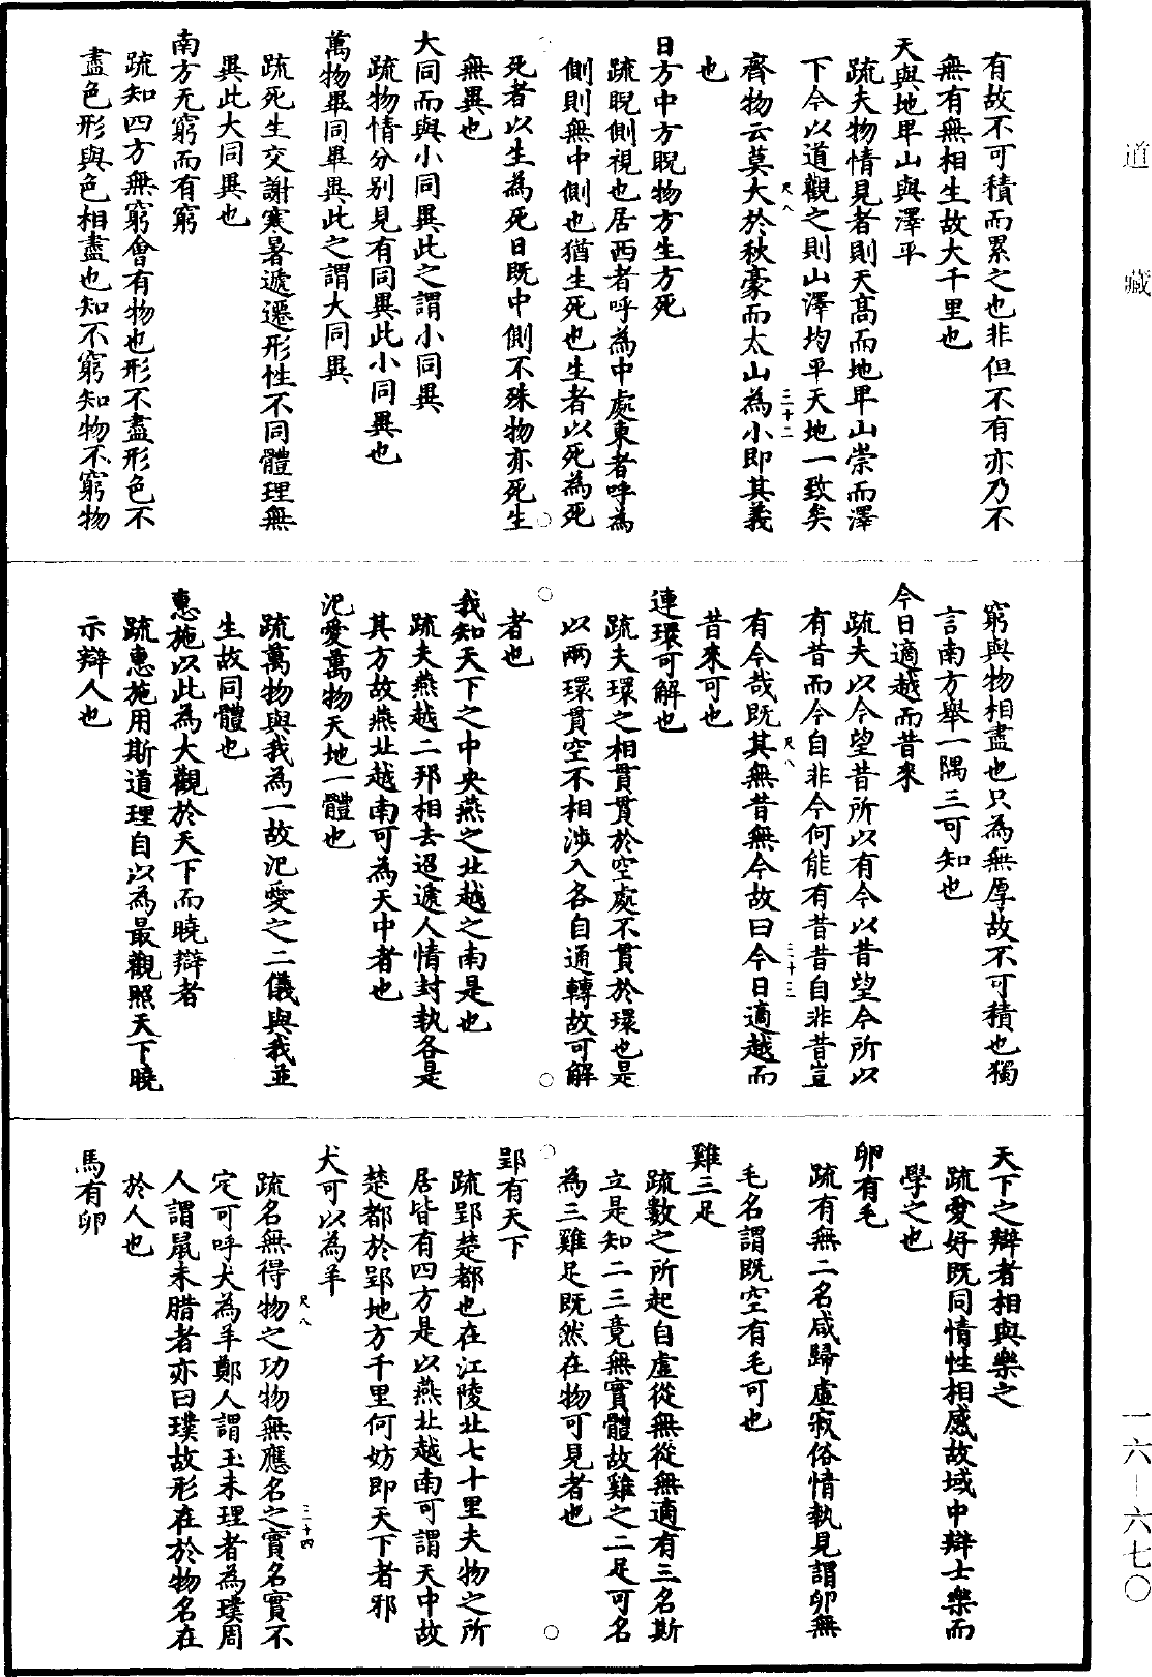 道藏
有故不可積而累之也非但不有亦乃不
無有無相生故大千里也
天與地卑山與澤平
疏夫物情見者則天高而地卑山崇而澤
下今以道觀之則山澤均平天地一致矣
齊物云莫大於秋豪而太山為小即其義
尺八
三十二
也
日方中方睨物方生方死
疏睨側視也居西者呼為中處東者呼為
側則無中側也猶生死也生者以死為死
死者以生為死日既中側不殊物亦死生
無異也
大同而與小同異此之謂小同異
疏物情分別見有同異此小同異也
萬物畢同畢異此之謂大同異
疏死生交謝寒暑遞遷形性不同體理無
異此大同異也
南方无窮而有窮
疏知四方無窮會有物也形不盡形色不
盡色形與色相盡也知不窮知物不窮物
窮與物相盡也只為無厚故不可積也獨
言南方舉一隅三可知也
今日適越而昔來
疏夫以今望昔所以有今以昔望今所以
有昔而今自非今何能有昔昔自非昔豈
有今哉既其無昔無今故曰今日適越而
尺八
三十三
昔來可也
連環可解也
疏夫環之相貫貫於空處不貫於環也是
以兩環貫空不相涉入各自通轉故可解
者也
我知天下之中央燕之北越之南是也
疏夫燕越二邦相去迢遞人情封執各是
其方故燕北越南可為天中者也
氾愛萬物天地一體也
疏萬物與我為一故氾愛之二儀與我並
生故同體也
惠施以此為大觀於天下而曉辯者
疏惠施用斯道理自以為最觀照天下曉
示辯人也
天下之辯者相與樂之
疏愛好既同情性相感故域中辯士樂而
學之也
卵有毛
疏有無二名咸歸虛寂俗情執見謂卵無
毛名謂既空有毛可也
雞三足
疏數之所起自虛從無從無適有三名斯
立是知二三竟無實體故雞之二足可名
為三雞足既然在物可見者也
郢有天下
疏郢楚都也在江陵北七十里夫物之所
居皆有四方是以燕北越南可謂天中故
楚都於郢地方千里何妨即天下者邪
犬可以為羊
尺八
三十四
疏名無得物之功物無應名之實名實不
定可呼犬為羊鄭人謂玉未理者為璞周
人謂鼠未腊者亦曰璞故形在於物名在
於人也
馬有卵
一六—六七〇